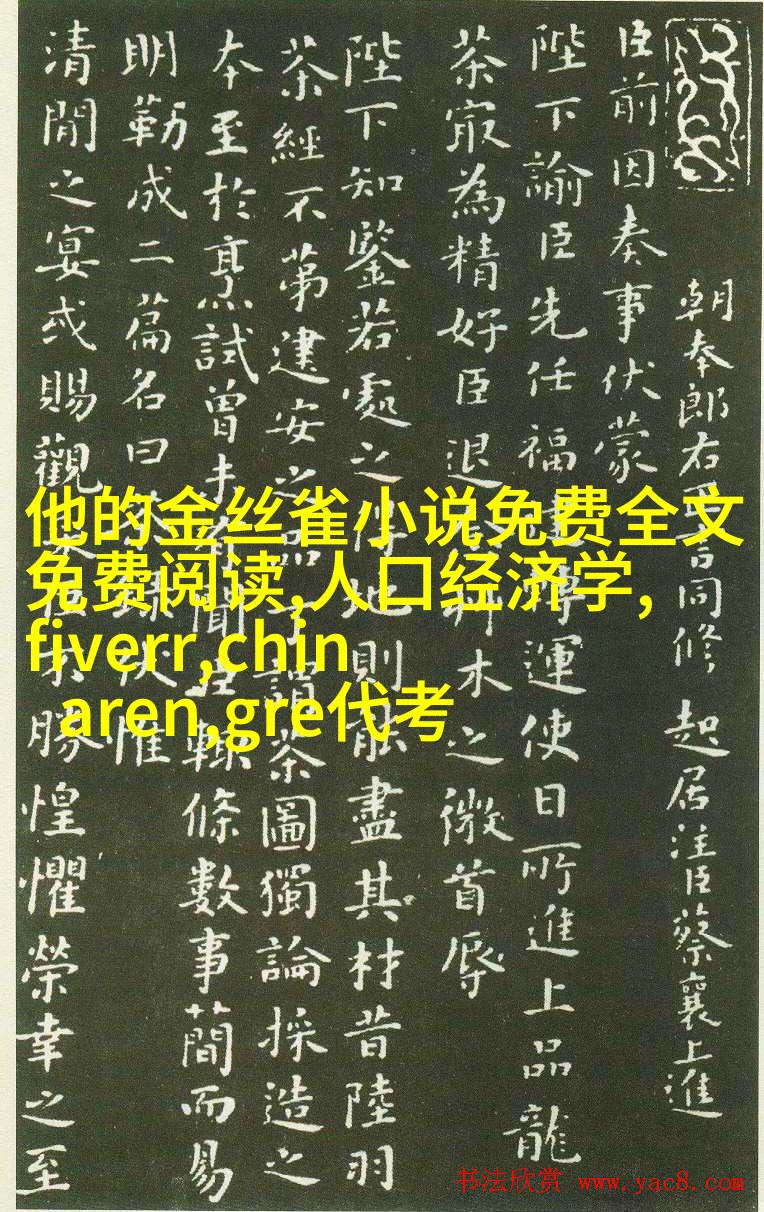 朝奉郎右言同修起居注臣蔡襄上進
臣前因奏事伏蒙
陛下諭臣先任福建轉運使日所進上品龍
茶最為精好臣退木之微首辱
陛下知鑒若處之得地則能盡其材昔陸羽
茶經不第建安之品丁謂茶圖獨論採造之
本至於烹試曾未有聞臣輒條數事簡而易
明勒成二篇名曰茶錄伏惟
清閒之宴或賜觀勝惶懼榮幸之至
他的金丝雀小说免费全文
免费阅读,人口经济学,
fiverr,chin
aren,gre代考
书法欣赏 www.yac8.com